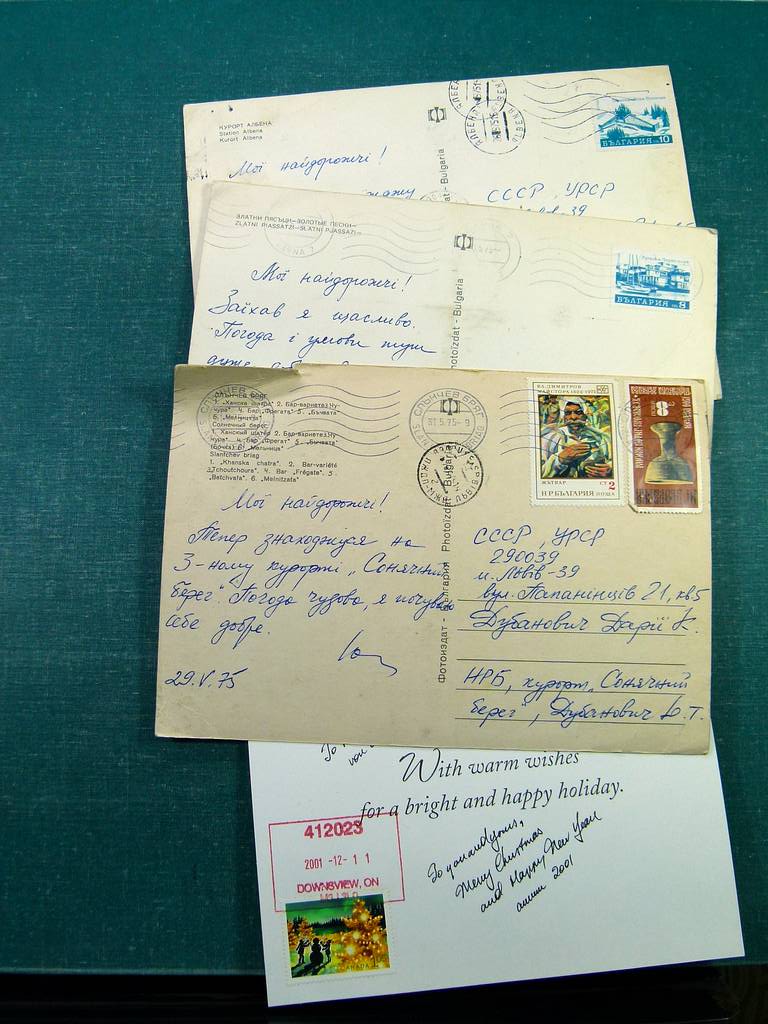 КУРОРТ АЛБЕНА
Station Albena
Kurort Albena
Мої найдорожчі!
СССР, УРСР
БЪЛГАРИЯ 10
Bulgaria
ЗЛАТНИ ПЯСЪЦИ—ЗОЛОТЫЕ ПЕСКИ—
ZLATNI PIASSATZI—SLATNI PJASSATZI—
Мої найдорожчі!
Заїхав я щасливо.
Погода і умови тут
дуже
БЪЛГАРИЯ 8
hotoizdat - Bulgaria
СЛЪНЧЕВ БРЯГ
1. „Ханска шатра" 2. Бар-вариете „Чу-
чура" 4. Бар „Фрегата" 5. „Бъчвата"
6. „Мелницата"
Солнечный берег
1. „Ханский шатер 2. Бар-варьете „Чу-
чура" 4. Бар „Фрегат" 5. „Бычвата"
(бочка) 6. „Мельница"
Slantchev briag
1. „Khanska chatra". 2. Bar-variété
„Tchoutchoura". 4. Bar „Frégata". 5
„Batchvata". 6. „Melnitzata"
СЛЪНЧЕВ БРЯГ
31.5.75-9
ВЛ. ДИМИТРОВ
МАЙСТОРА 1882-1972
ЖЪТВАР СТ 2
НР БЪЛГАРИЯ ПОЩА
8
Мої найдорожчі!
Тепер знаходжуся на
3-ному курорті „Сонячний
берег". Погода чудова, я почуваю
себе добре.
29.V.75
Фотоиздат - България Photoizdat - Bulgaria
СССР, УРСР
290039
м. Львів-39
вул. Папанінців 21, кв5
Дубанович Дарії К.
НРБ, курорт „Сонячний
берег", Дубанович Ю.Т.
With warm wishes
for a bright and happy holiday.
To you and yours,
Merry Christmas
and Happy New Year
2001
412023
2001-12-11
DOWNSVIEW, ON
CANADA